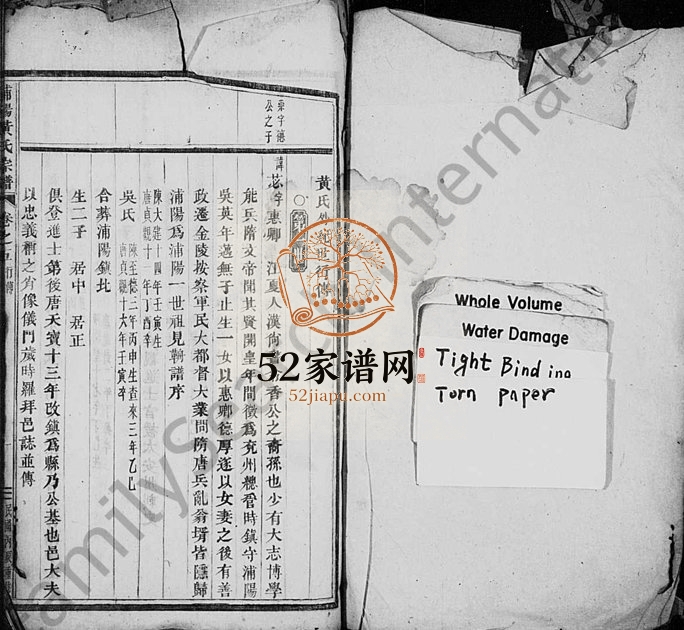 栗字德
公之子
黃氏
諱苾字惠卿 江夏人漢尚 香公之裔孫也少有大志博學
能兵隋文帝聞其賢開皇年間徵為兗州總管時鎮守浦陽
吳英年邁無子止生一女以惠卿德厚遂以女妻之後有善
政遷金陵按察軍民大都督大業間隋唐兵亂翁壻皆隱歸
浦陽為浦陽一世祖見鞆譜序
陳大建十四年壬寅生
唐貞觀十一年丁酉卒
吳氏
陳至德三年丙申生查來三年乙巳
唐貞觀十六年壬寅卒
合葬浦陽鎮北
生二子 居中 居正
俱登進士第後唐天寶十三年改鎮為縣乃公基也邑大夫
以忠義稱之肖像儀門歲時羅拜邑誌並傳
浦陽黃氏宗譜
卷之
52家谱网
52jiapu.com
Whole Volume
Water Damage
Tight Binding
Torn paper
FamilySearch International